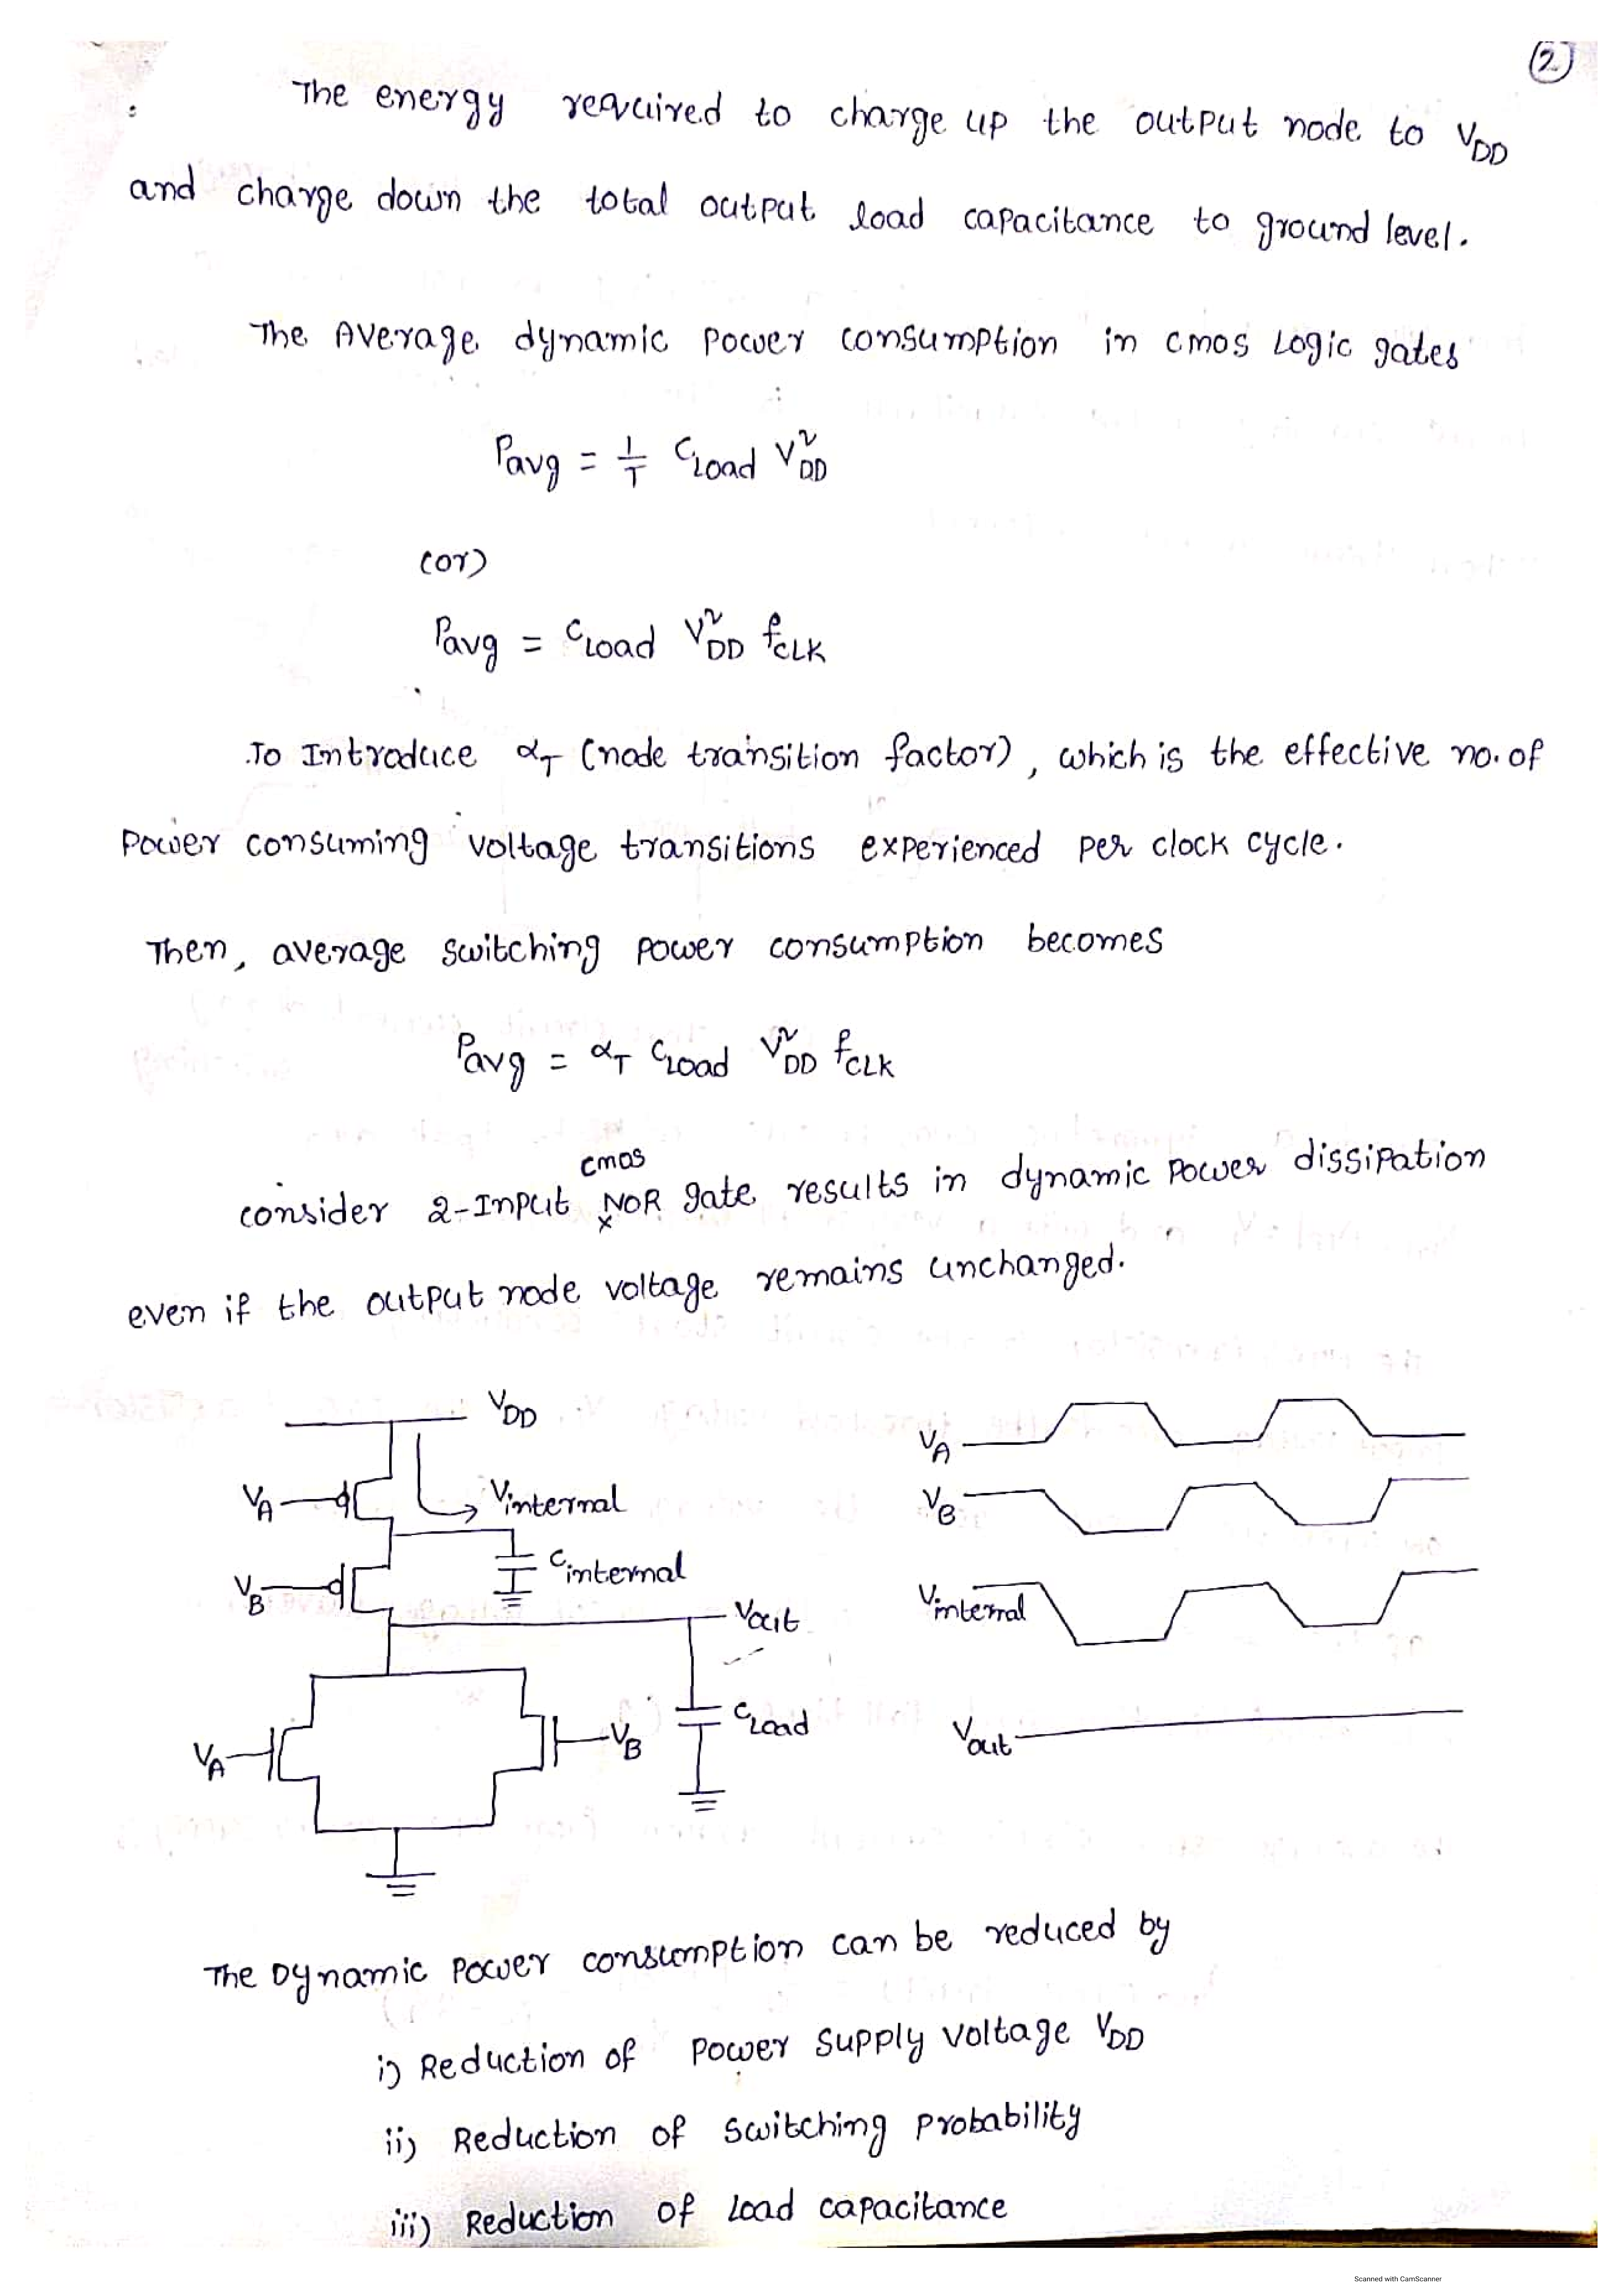 ②
The energy required to charge up the output node to VDD
and charge down the total output load capacitance to ground level.
The Average dynamic power consumption in cmos Logic gates
Pavg = 1/T CLoad V²DD
(or)
Pavg = CLoad V²DD fCLK
To Introduce αT (node transition factor), which is the effective no. of
power consuming voltage transitions experienced per clock cycle.
Then, average switching power consumption becomes
Pavg = αT CLoad V²DD fCLK
cmos
consider 2-Input NOR gate results in dynamic power dissipation
even if the output node voltage remains unchanged.
VDD
VA
Vinternal
Cinternal
VB
Vout
VA
VB
CLoad
VA
VB
Vinternal
Vout
The Dynamic power consumption can be reduced by
i) Reduction of power supply voltage VDD
ii) Reduction of switching probability
iii) Reduction of Load capacitance
Scanned with CamScanner